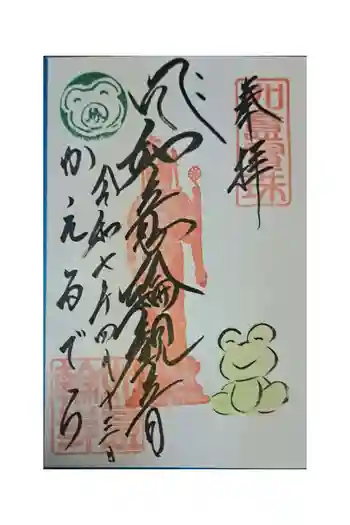 奉拝
如意輪観音
令和七年四月十三日
かえるでら